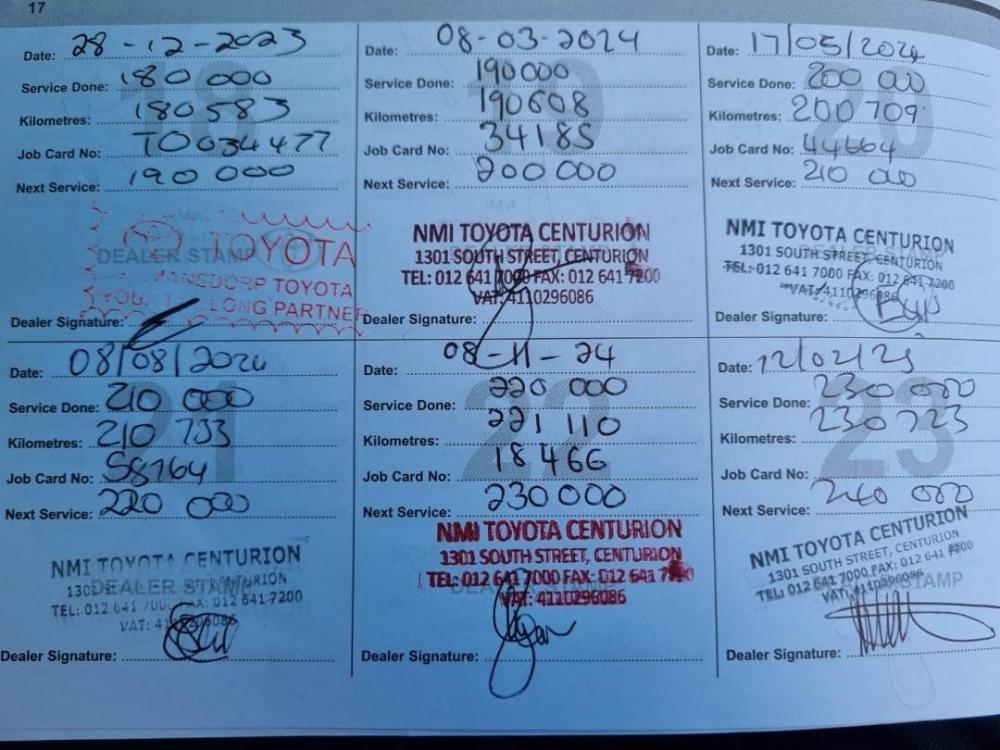 17
Date: 28-12-2023
Service Done: 180 000
Kilometres: 180583
Job Card No: T0034477
Next Service: 190 000
TOYOTA
DEALER STAMP
TOYOTA
LONG PARTNER
Dealer Signature:
Date: 08-03-2024
Service Done: 190000
Kilometres: 190608
Job Card No: 34185
Next Service: 200 000
NMI TOYOTA CENTURION
1301 SOUTH STREET, CENTURION
TEL: 012 641 7000 FAX: 012 641 7200
VAT: 4110296086
Dealer Signature:
Date: 17/05/2024
20
Service Done: 200 000
Kilometres: 200 709
Job Card No: 44664
Next Service: 210 000
NMI TOYOTA CENTURION
1301 SOUTH STREET, CENTURION
TEL: 012 641 7000 FAX: 012 641 7200
VAT: 4110296086
Dealer Signature:
Date: 08/08/2024
21
Service Done: 210 000
Kilometres: 210 733
Job Card No: 58764
Next Service: 220 000
NMI TOYOTA CENTURION
DEALER STAMP
TEL: 012 641 FAX: 012 641 7200
VAT:
Dealer Signature:
Date: 08-11-24
22
Service Done: 220 000
Kilometres: 221 110
Job Card No: 18466
Next Service: 230 000
NMI TOYOTA CENTURION
1301 SOUTH STREET, CENTURION
TEL: 012 641 7000 FAX: 012 641
VAT: 4110296086
Dealer Signature:
Date: 12/02/25
23
Service Done: 230 000
Kilometres: 230 723
Job Card No:
Next Service: 240 000
NMI TOYOTA CENTURION
1301 SOUTH STREET, CENTURION
TEL: 012 641 7000 FAX: 012 641 7200
VAT: 4110296086
STAMP
Dealer Signature: